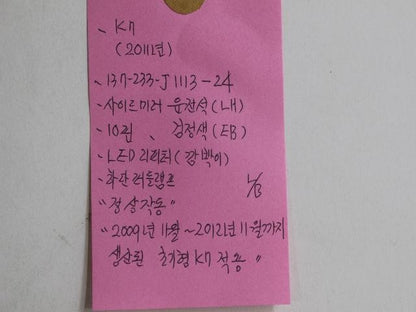 K7
(2011년)
137-233-J1113-24
사이드미러 운전석(LH)
10핀 、 검정색(EB)
LED 리피터(깜빡이)
하단 퍼들램프
"정상작동"
"2009년 11월~2012년 11월까지
생산된 초기형 K7 적용"